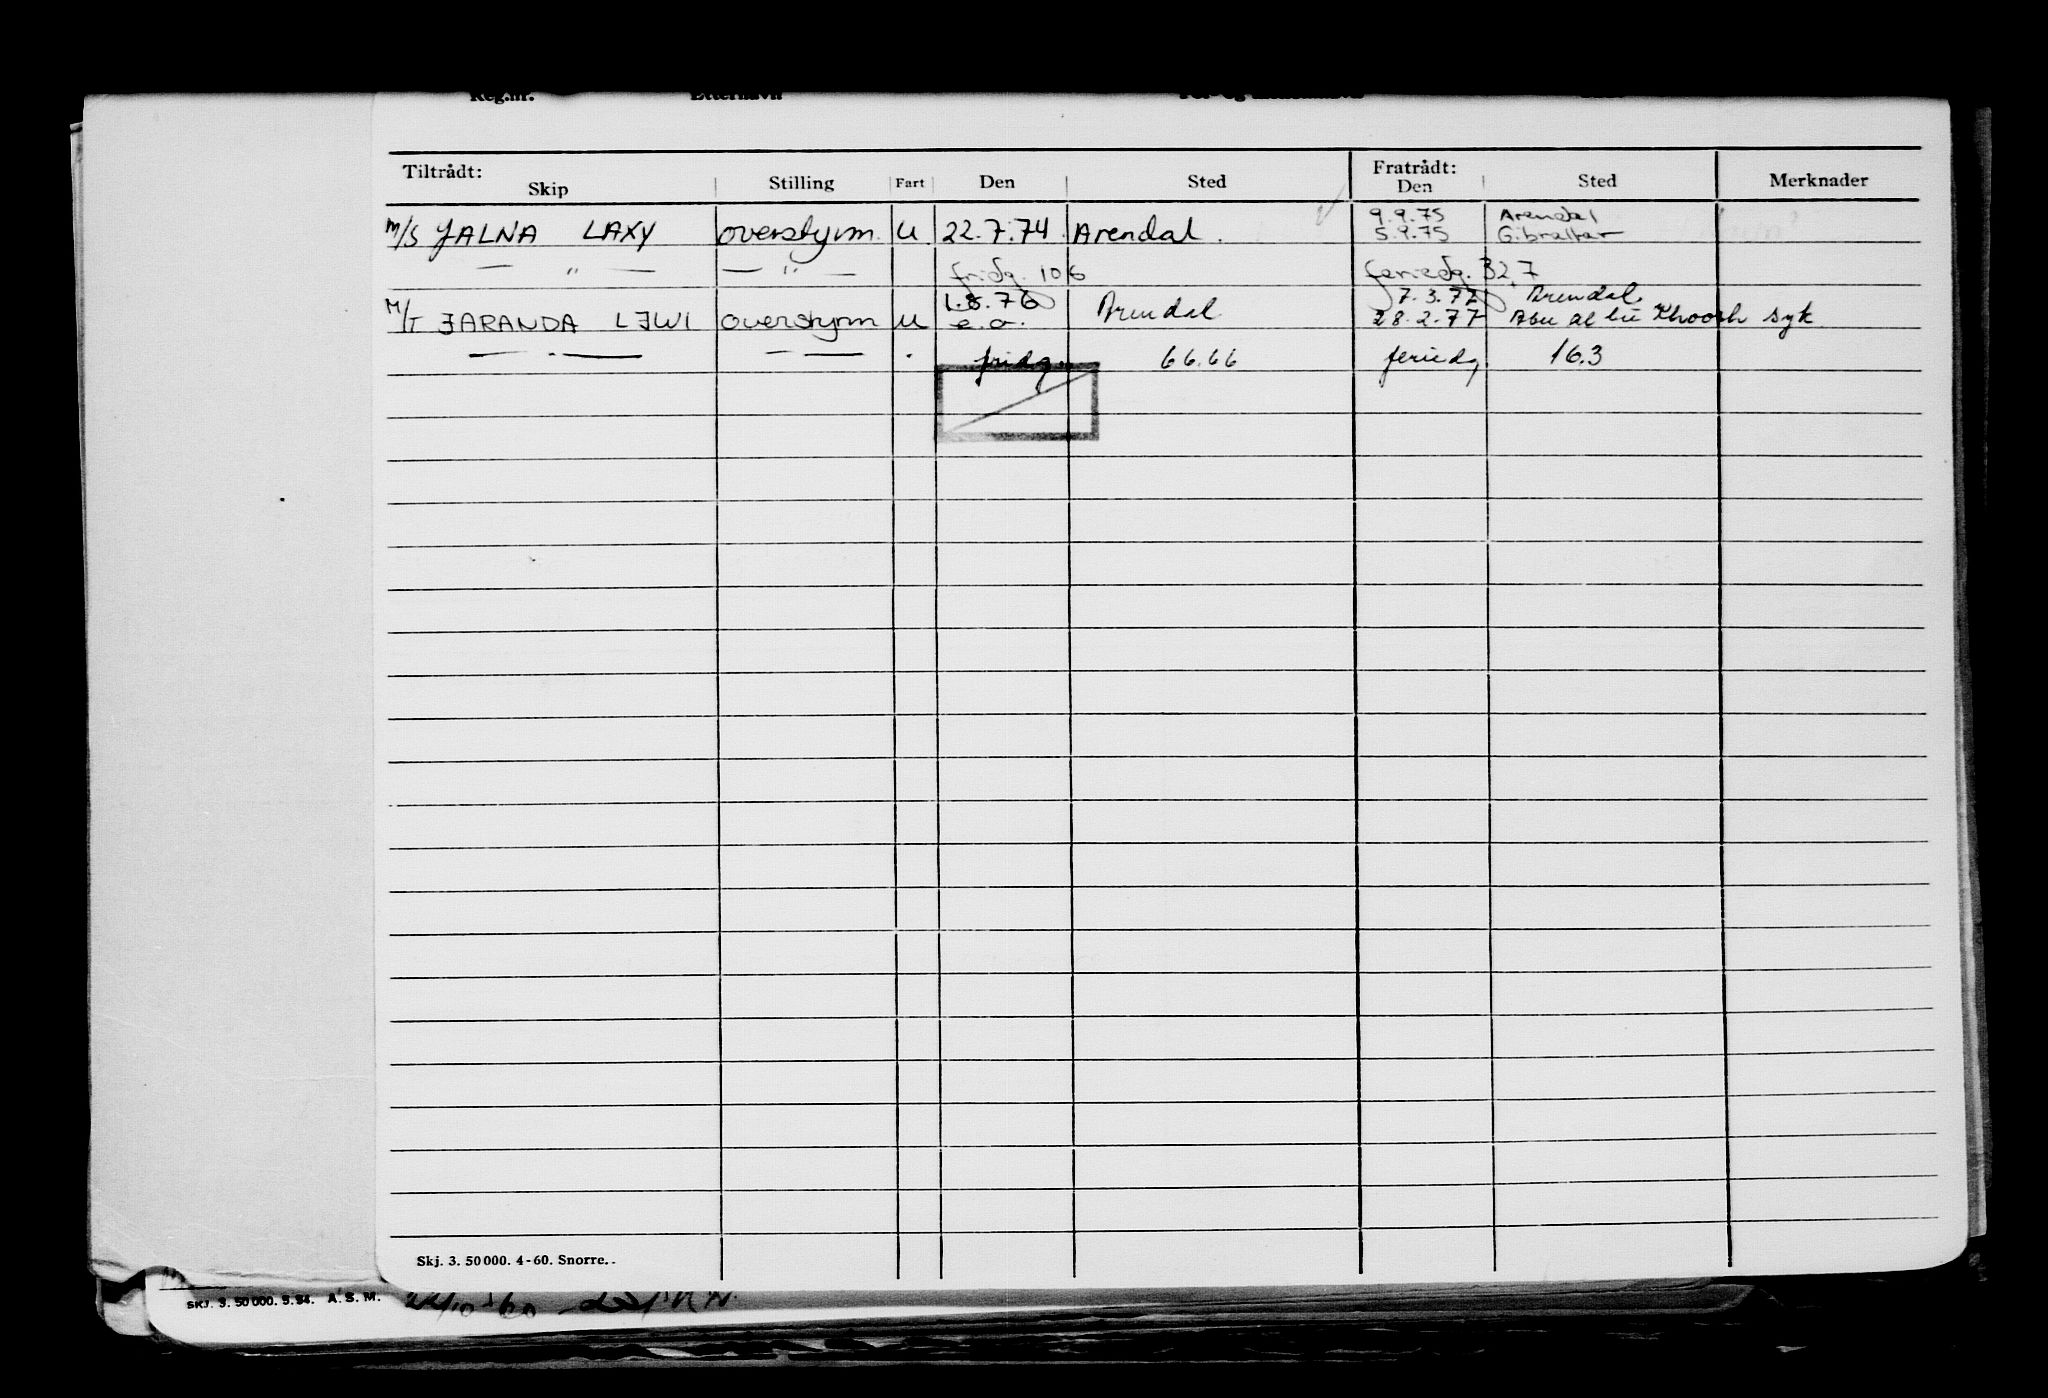 Reg.nr. Etternavn
Tiltrådt: Skip Stilling Fart Den Sted Fratrådt: Den Sted Merknader
9.9.75 Arendal
M/S JALNA LAXY overstyrm. U 22.7.74 Arendal. 5.9.75 Gibraltar
— " — — " — fridg. 106 feriedg. 327
1.8.76 7.3.77 Arendal
M/T JARANDA LJWI overstyrm U e.o. Arendal 28.2.77 Abu al bu Khoosh syk
— . — — — . fridg. 66.66 feriedg 16.3
Skj. 3. 50 000. 4-60. Snorre.
SKJ. 3. 50 000. 5.54. A.S.M.